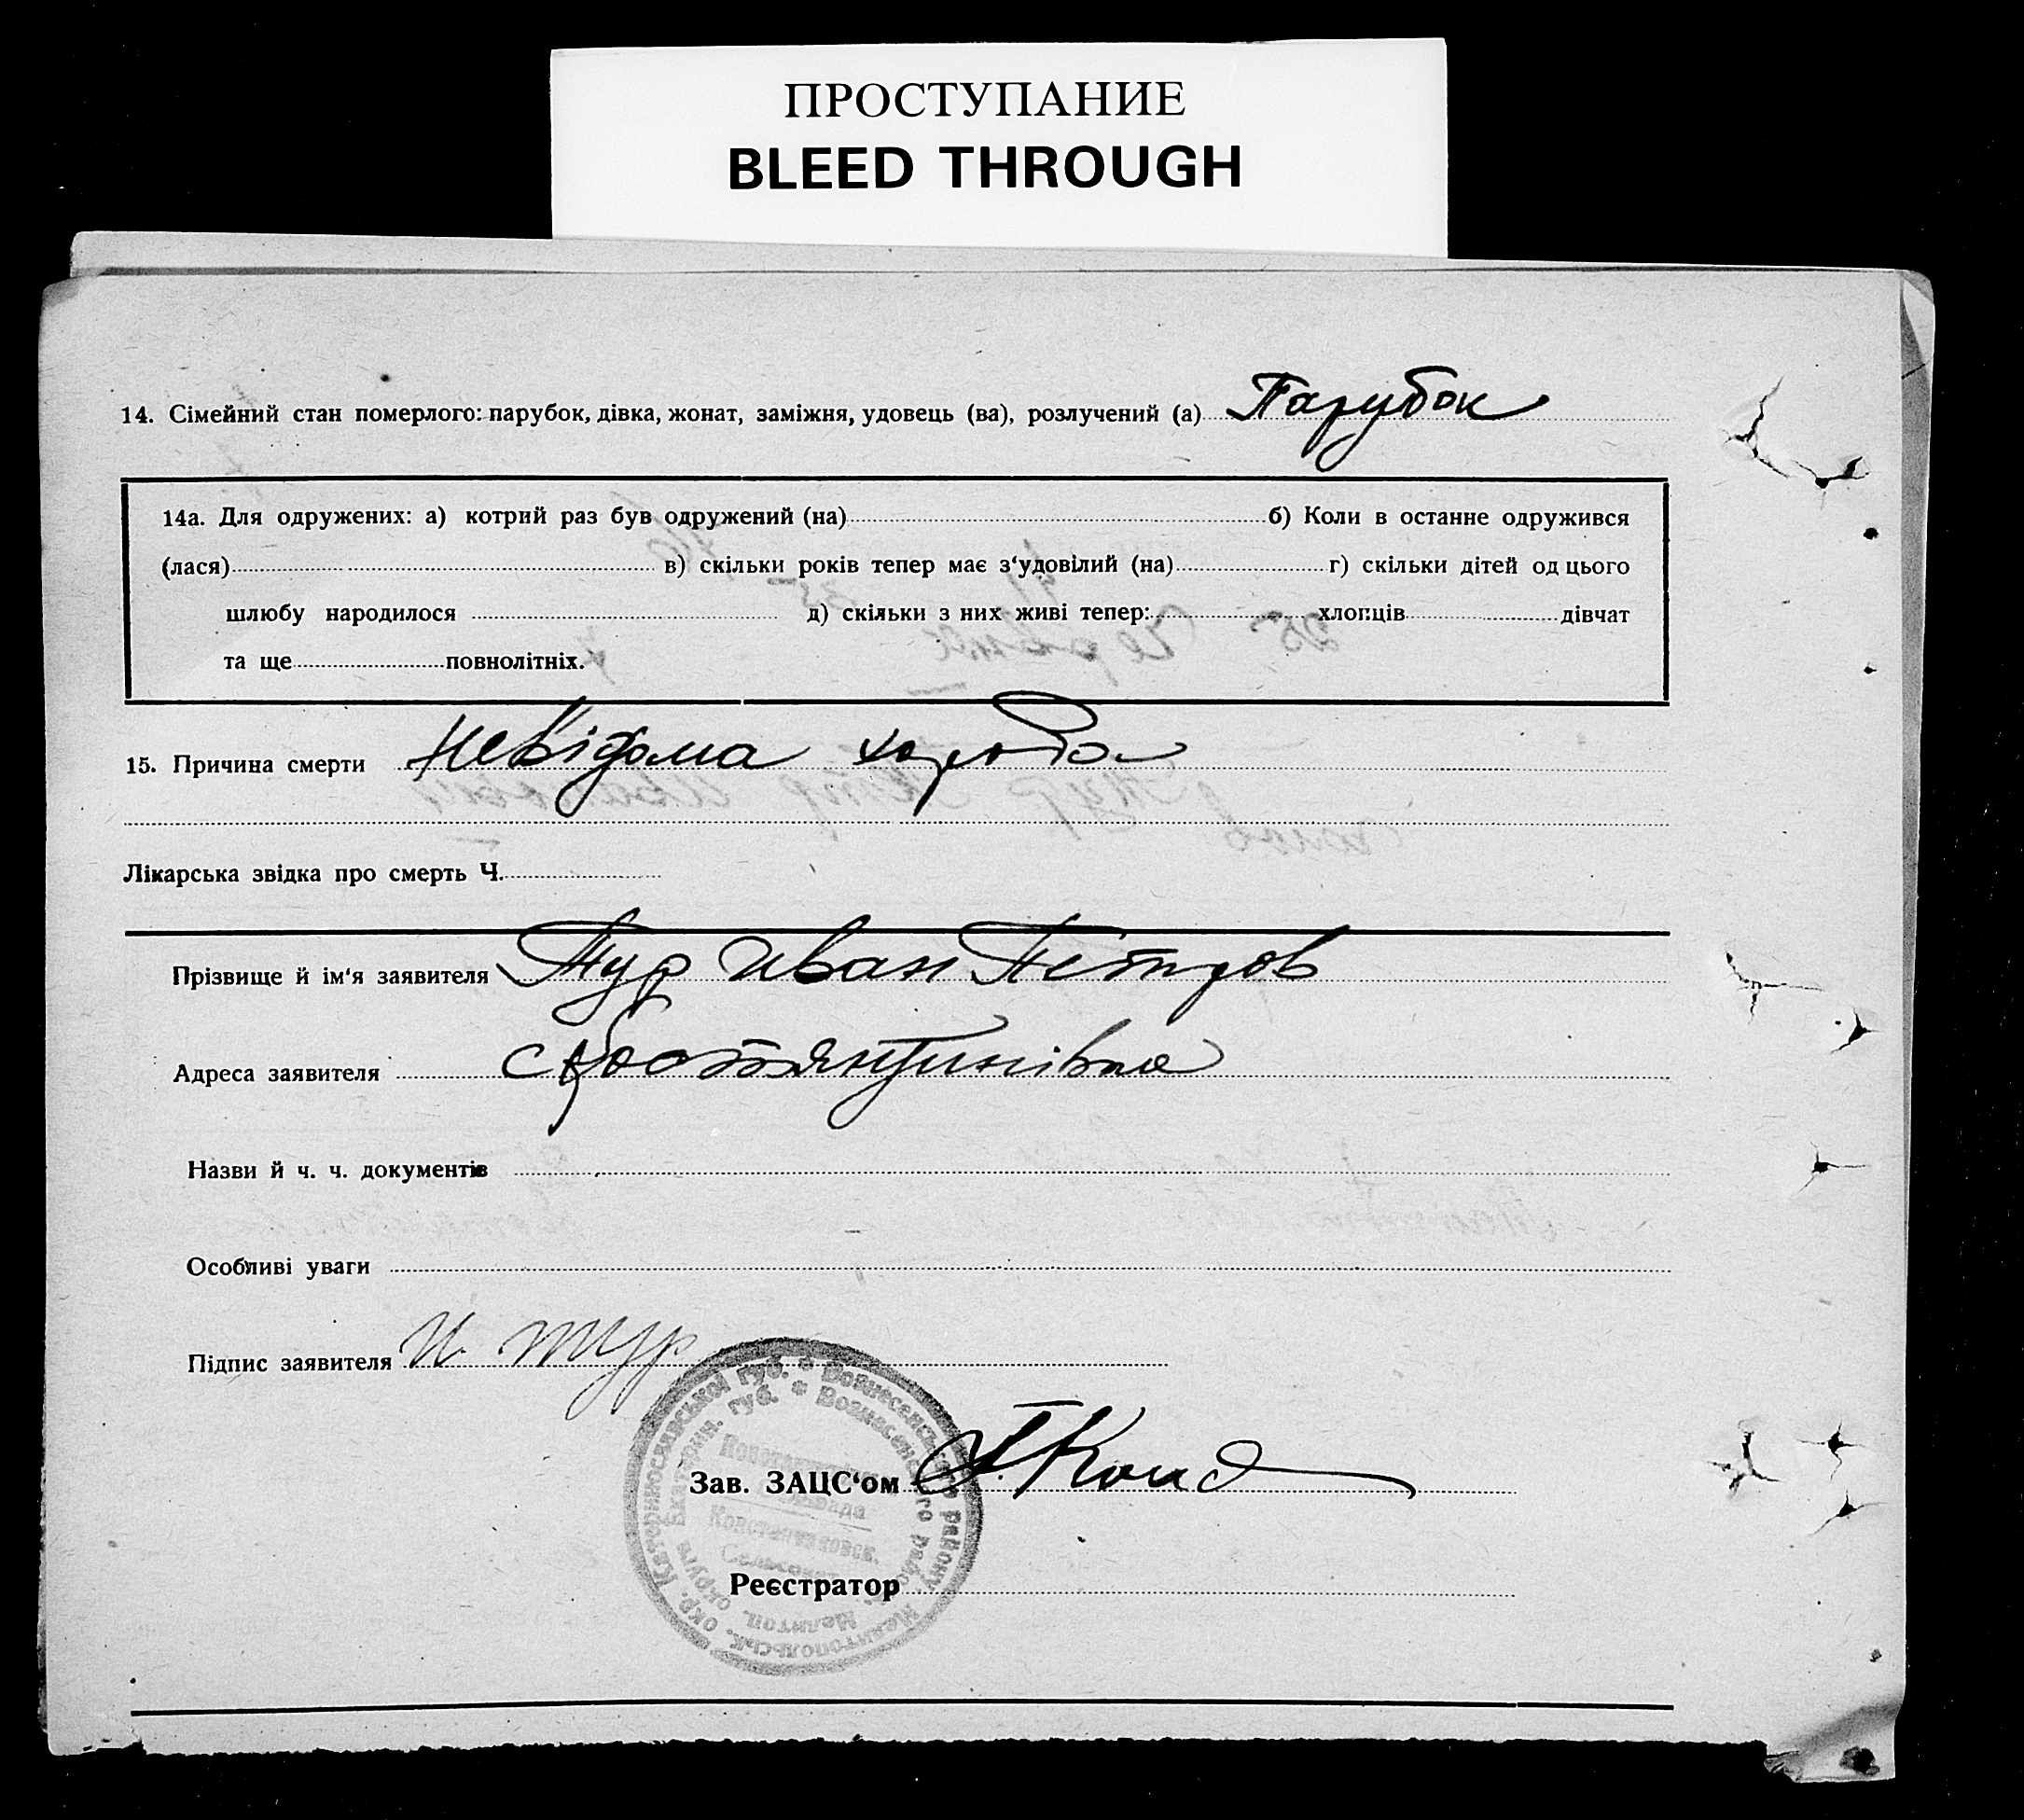 ПРОСТУПАНИЕ
BLEED THROUGH
14. Сімейний стан померлого: парубок, дівка, жонат, заміжня, удовець (ва), розлучений (а) Парубок
14а. Для одружених: а) котрий раз був одружений (на) б) Коли в останне одружився
(лася) в) скільки років тепер має з‘удовілий (на) г) скільки дітей од цього
шлюбу народилося д) скільки з них живі тепер: хлопців дівчат
та ще повнолітніх.
15. Причина смерти Невідома хороба
Лікарська звідка про смерть Ч.
Прізвище й ім‘я заявителя Тур Иван Петров
Адреса заявителя с Костянтинівка
Назви й ч. ч. документів
Особливі уваги
Підпис заявителя И. Тур
Зав. ЗАЦС‘ом
Реєстратор
Катеринославської губ. * Вознесенського району Мелитопольськ. окр.
Екатерин. губ. * Вознесенского Мелитоп. округа